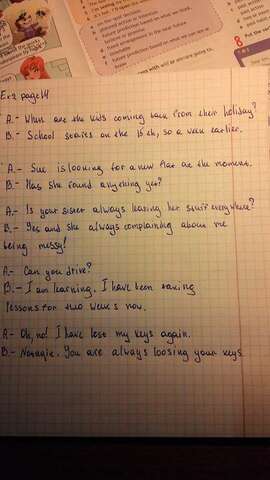 Ex 2 page 14
A.- When are the kids coming back from their holiday?
B.- School starts on the 15 th, so a week earlier.
A.- Sue is looking for a new flat at the moment.
B.- Has she found anything yet?
A.- Is your sister always leaving her stuff everywhere?
B.- Yes and she always complaining about me
being messy!
A.- Can you drive?
B.- I am learning. I have been taking
lessons for two weeks now.
A.- Oh, no! I have lost my keys again.
B.- You are always loosing your keys
8 Put the verb